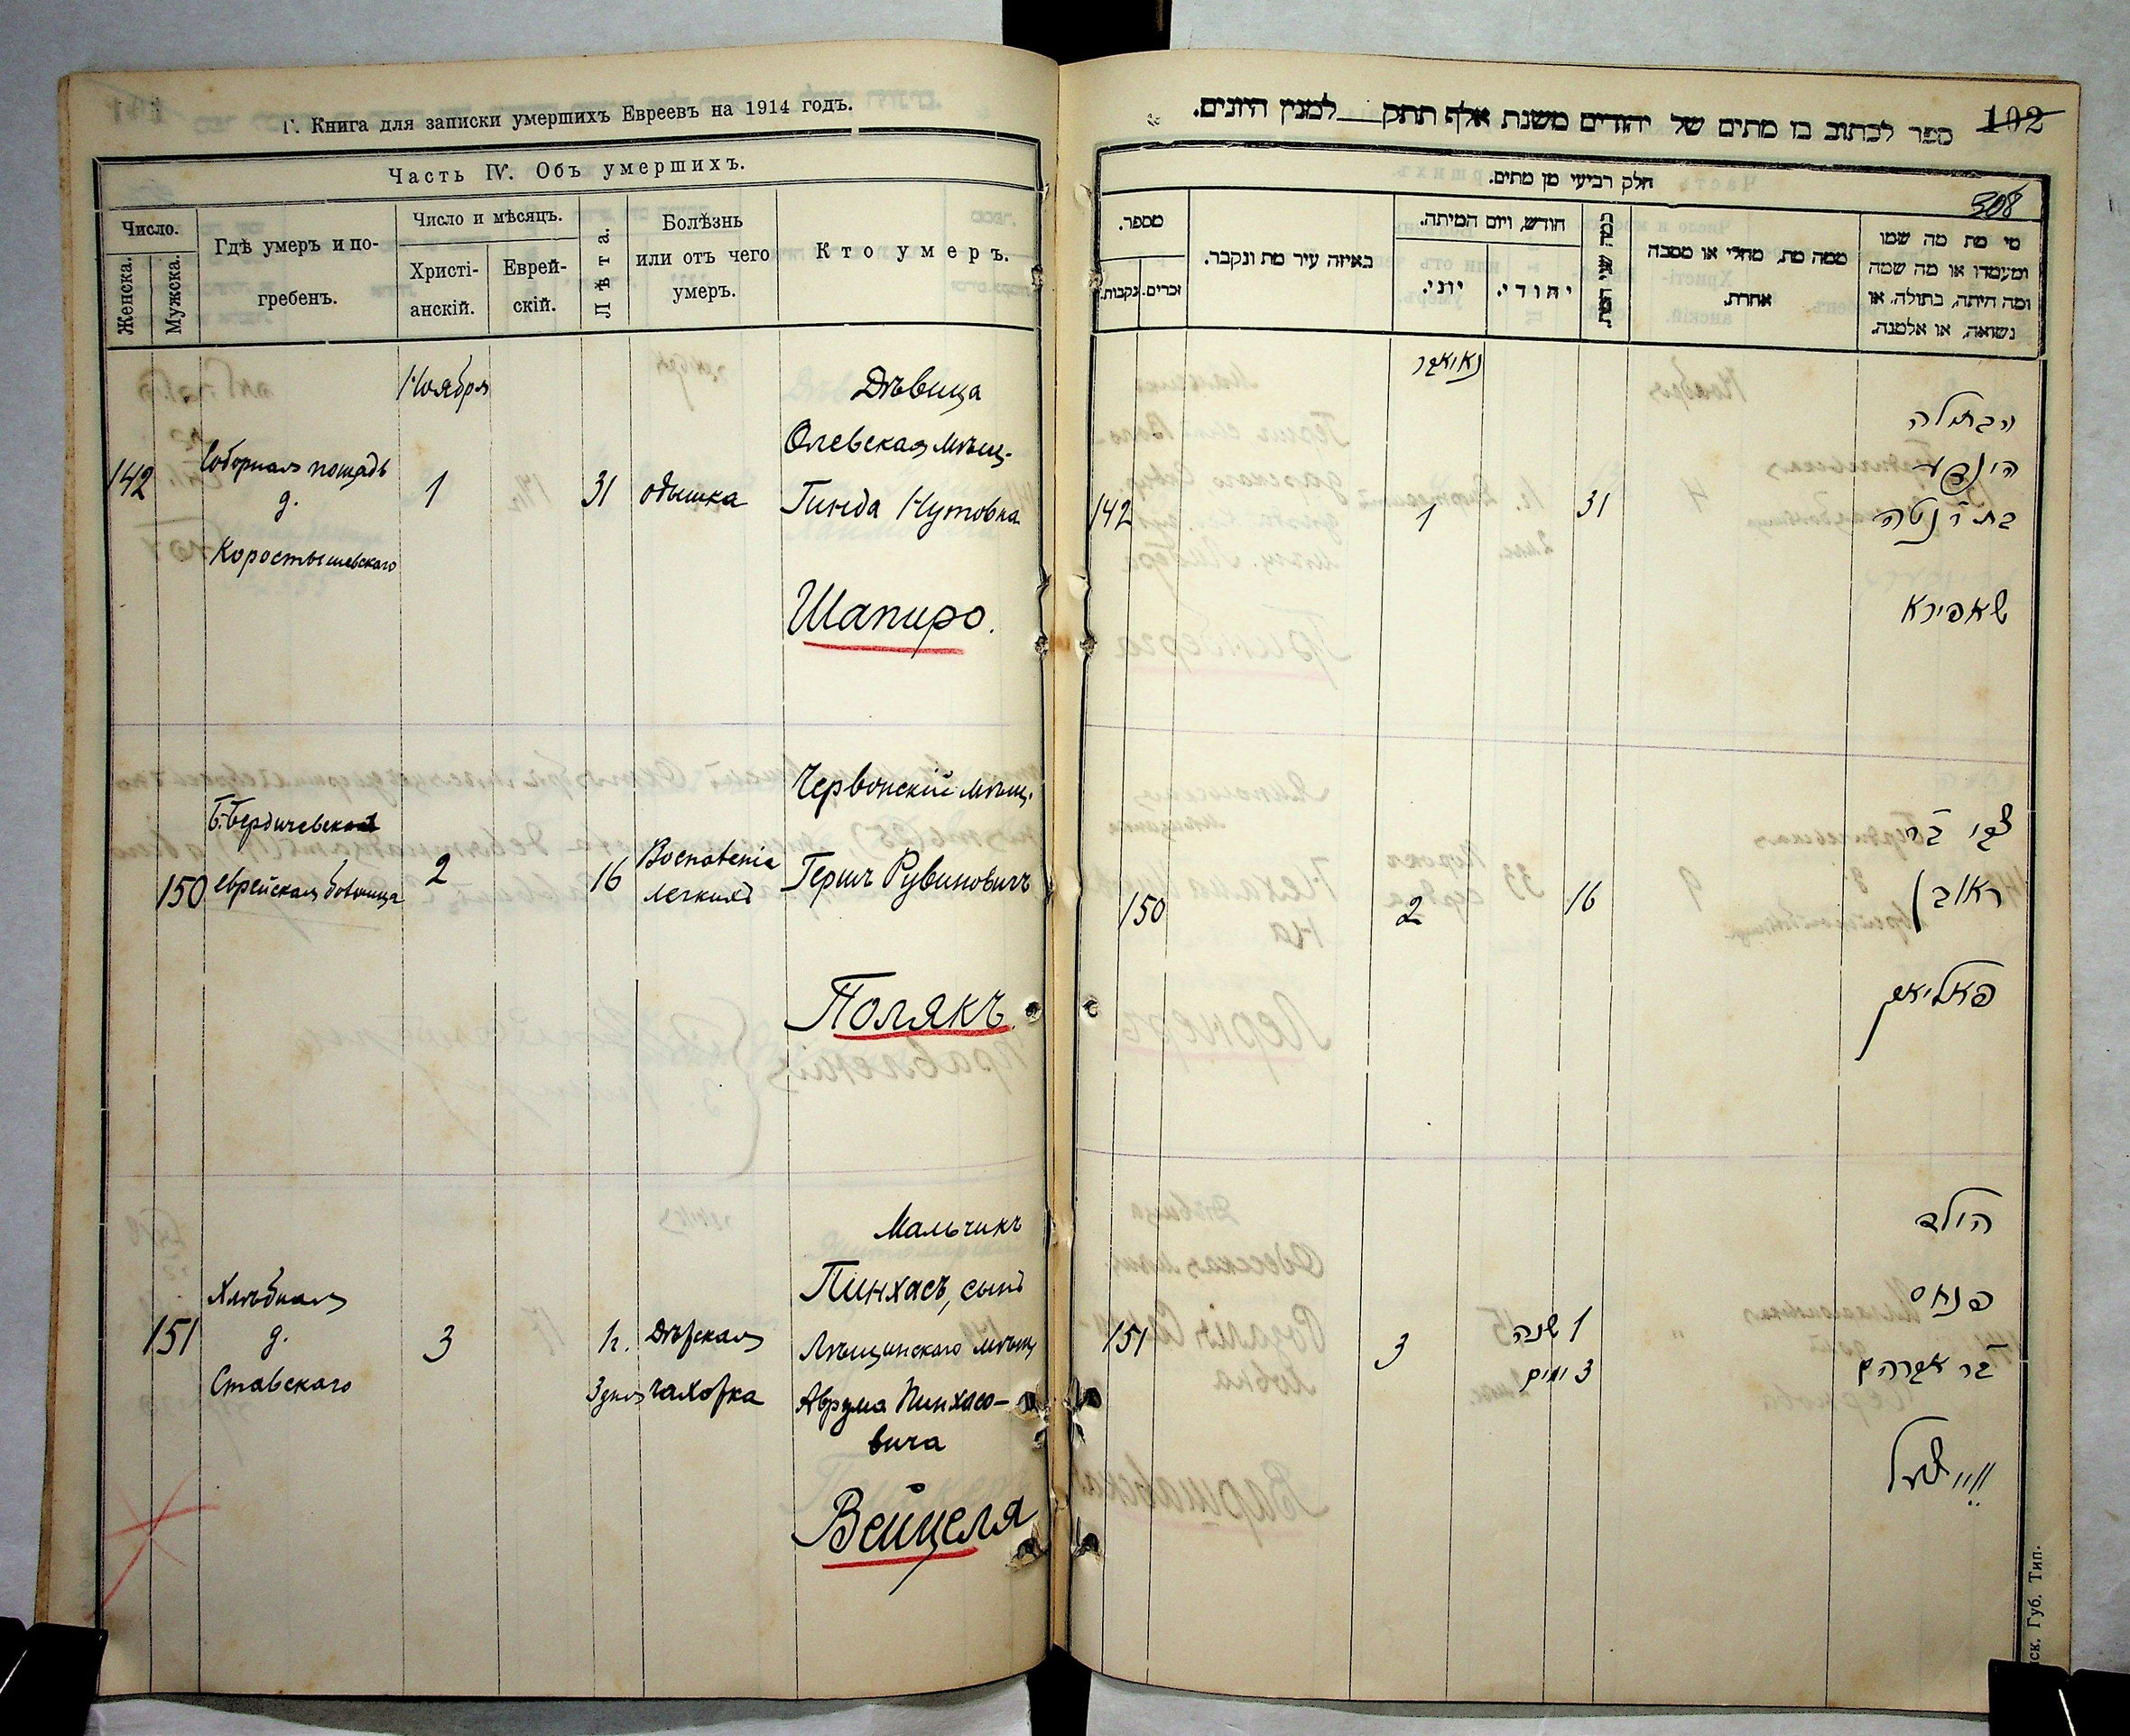 Г. Книга для записки умершихъ Евреевъ на 1914 годъ.
Часть IV. Объ умершихъ.
Число.
Женска.
Мужска.
Гдѣ умеръ и по-
гребенъ.
Число и мѣсяцъ.
Христі-
анскій.
Еврей-
скій.
Лѣта.
Болѣзнь
или отъ чего
умеръ.
Кто умеръ.
Ноября
142
Соборная пощадь
д.
Коростышевскаго
1
31
одышка
Дѣвица
Олевская мѣщ.
Гинда Нутовна
Шапиро.
150
Б. Бердичевская
еврейская больница
2
16
Воспаленіе
легкихъ
Червонскій мѣщ.
Гершъ Рувиновичъ
Полякъ.
151
Хлѣбная
д.
Ставскаго
3
1г.
3 дня
Дѣтская
чахотка
Мальчикъ
Пинхасъ, сынъ
мѣщ
Аврума Пинхасо-
вича
Вейцеля
102
ספר לכתוב בו מתים של יהודים משנת אלף תתק למנין היונים.
308
חלק רביעי מן מתים.
מספר.
נקבות.
זכרים.
באיזה עיר מת ונקבר.
חודש, ויום המיתה.
יוני.
יהודי.
ממה מת, מחלי או מסבה
אחרת.
מי מת מה שמו
ומעמדו או מה שמה
ומה היתה, בתולה, או
נשואה, או אלמנה.
נאיאבר
142
1
31
הבתולה
הינדע
בת ר' נטה
שאפירא
150
2
16
צבי בר
ראובן
פאליאק
151
3
1 שנה
3 ימים
הילד
פנחס
בר אברהם
ווייצעל
Губ. Тип.